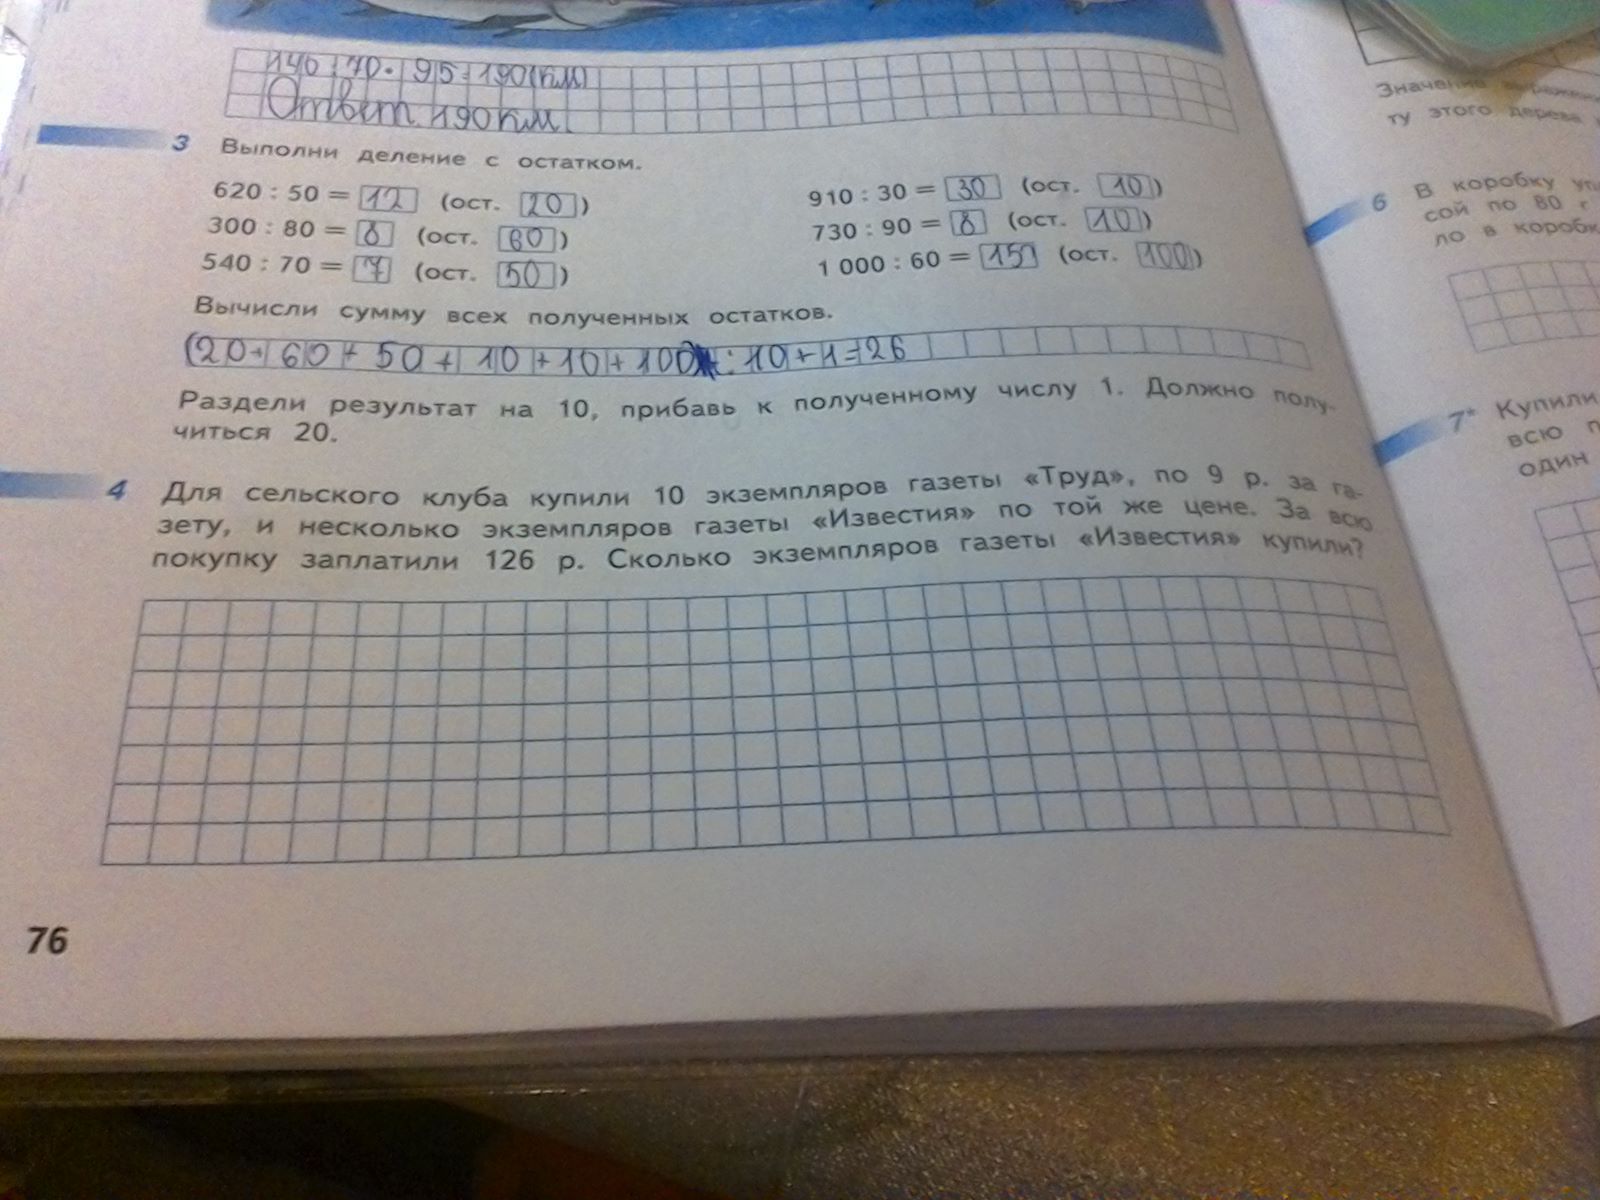 140 : 70 · 95 = 190(км)
Ответ 190 км.
3 Выполни деление с остатком.
620 : 50 = 12 (ост. 20)
300 : 80 = 8 (ост. 60)
540 : 70 = 7 (ост. 50)
910 : 30 = 30 (ост. 10)
730 : 90 = 8 (ост. 10)
1 000 : 60 = 15 (ост. 100)
Вычисли сумму всех полученных остатков.
(20+60+50+10+10+100) : 10+1=26
Раздели результат на 10, прибавь к полученному числу 1. Должно полу-
читься 20.
4 Для сельского клуба купили 10 экземпляров газеты «Труд», по 9 р. за га-
зету, и несколько экземпляров газеты «Известия» по той же цене. За всю
покупку заплатили 126 р. Сколько экземпляров газеты «Известия» купили?
76
Значение
ту этого дерева
6 В коробку
сой по 80 г
ло в коробк
7* Купили
всю
один